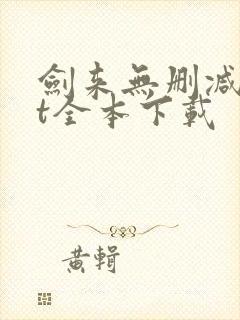 劍来無删减
t全本下載
黄輯